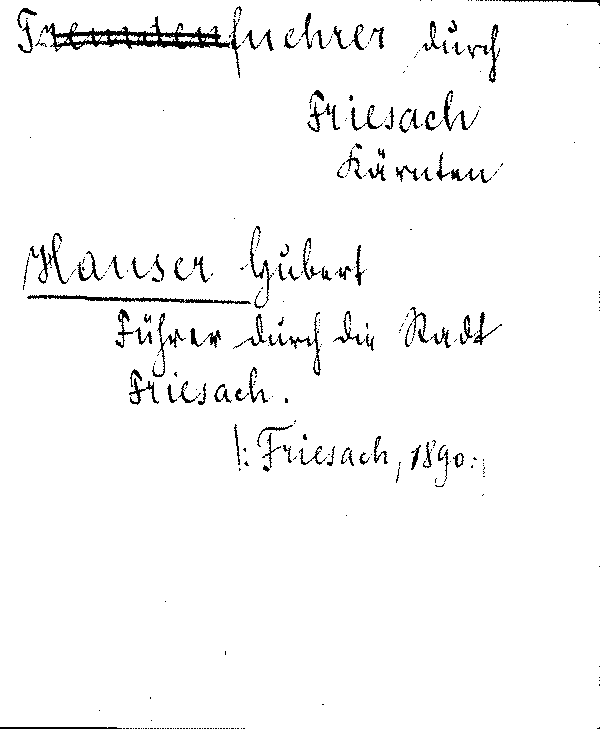 Fremdenfuehrer durch
Friesach
Kärnten
Hauser Hubert
Führer durch die Stadt
Friesach.
|: Friesach, 1890:|